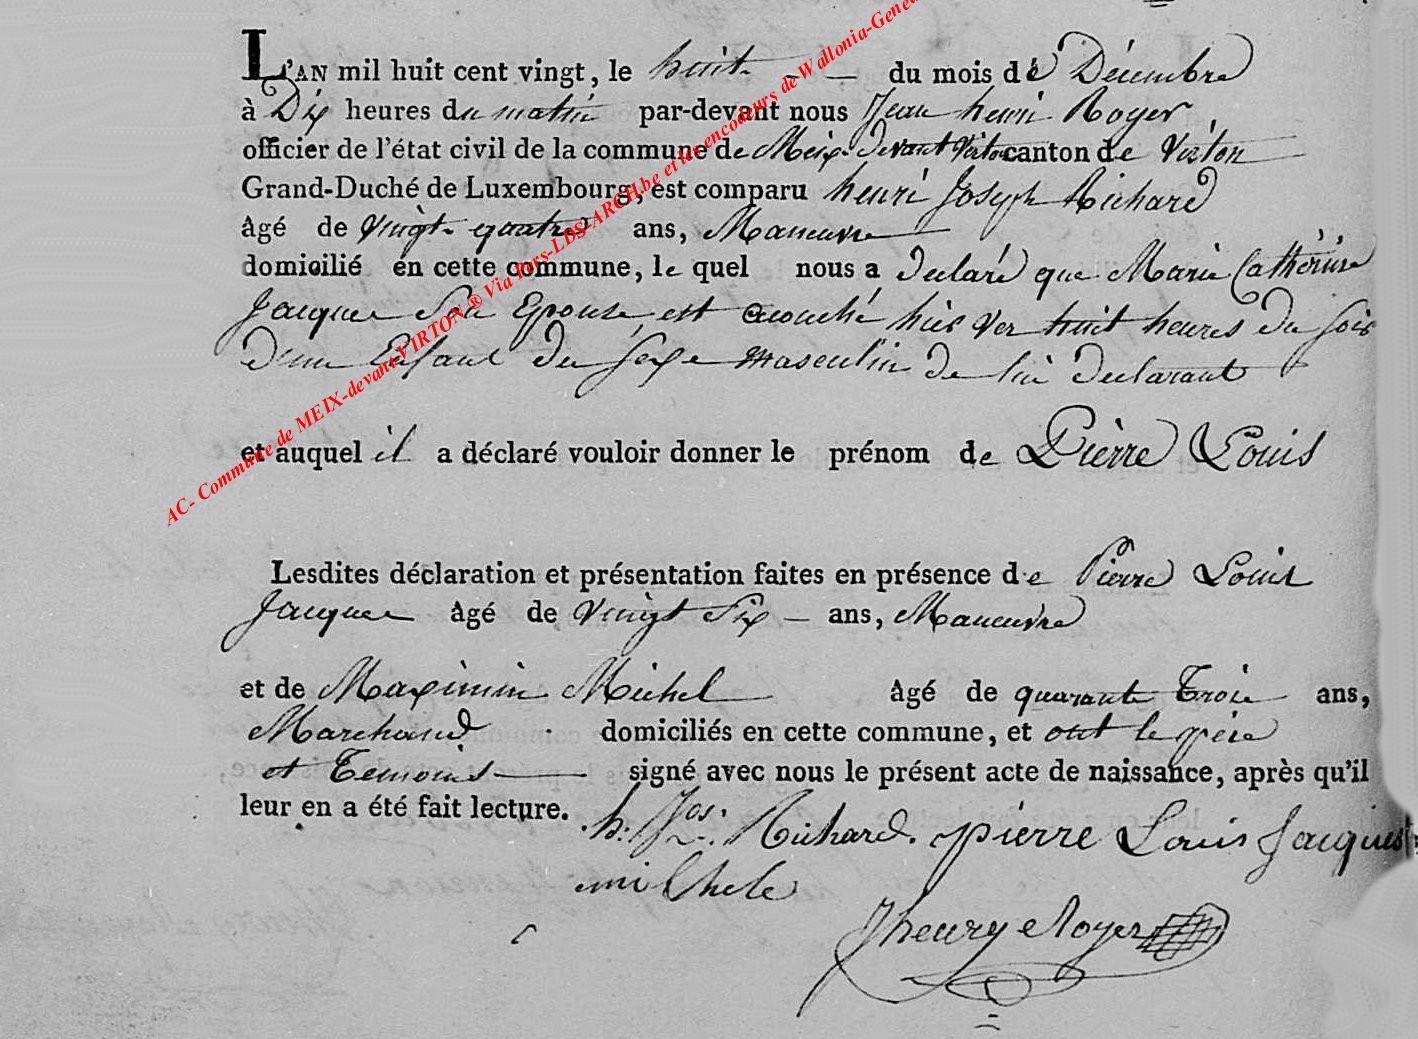 L'AN mil huit cent vingt, le huit - — du mois de Décembre
à Dix heures du matin par-devant nous Jean henri Royer
officier de l'état civil de la commune de Meix devant Virton canton de Virton
Grand-Duché de Luxembourg, est comparu henri Joseph Richard
âgé de vingt quatre ans, Maneuvre
domicilié en cette commune, le quel nous a declaré que Marie Catherine
Jacques Son Epouse est acouché hier ver huit heures du soir
d'un Enfant du sexe masculin de lui declarant
et auquel il a déclaré vouloir donner le prénom de Pierre Louis
Lesdites déclaration et présentation faites en présence de Pierre Louis
Jacques âgé de vingt Six — ans, Maneuvre
et de Maximin Michel âgé de quarante Trois ans,
Marchand domiciliés en cette commune, et ont le père
et Temoins — signé avec nous le présent acte de naissance, après qu'il
leur en a été fait lecture. h: Jos: Richard. pierre Louis Jacques
michele
Jhenry Royer
AC- Commune de MEIX-devant-VIRTON ® Via Pers-LDS-ARCH.be et les encodeurs de Wallonia-Genea